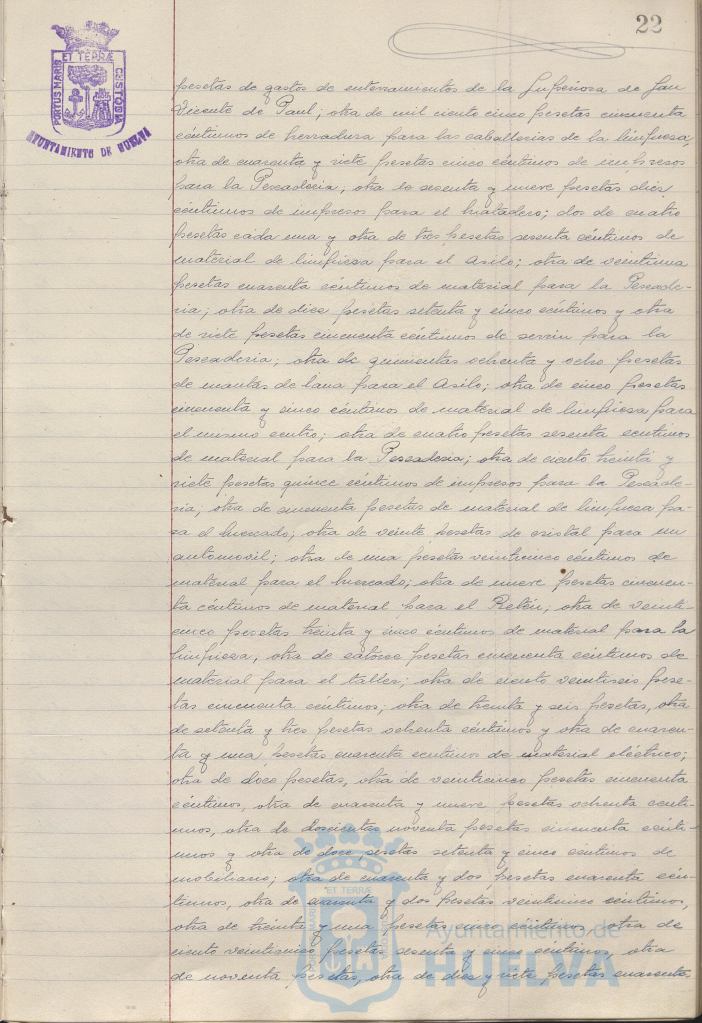 22
PORTUS MARIS ET TERRÆ CUSTODIA
AYUNTAMIENTO DE HUELVA
pesetas de gastos de enterramientos de la de San
Vicente de Paul; otra de mil ciento cinco pesetas cincuenta
céntimos de herradura para las caballerías de la limpieza;
otra de cuarenta y siete pesetas cinco céntimos de impresos
para la Pescadería; otra de sesenta y nueve pesetas diez
céntimos de impresos para el Matadero; dos de cuatro
pesetas cada una y otra de tres pesetas sesenta céntimos de
material de limpiesa para el Asilo; otra de veintiuna
pesetas cuarenta céntimos de material para la Pescade-
ria; otra de diez pesetas setenta y cinco céntimos y otra
de siete pesetas cincuenta céntimos de serrin para la
Pescaderia; otra de quinientas ochenta y ocho pesetas
de mantas de lana para el Asilo; otra de cinco pesetas
cincuenta y cinco céntimos de material de limpiesa para
el mismo centro; otra de cuatro pesetas sesenta centimos
de material para la Pescaderia; otra de ciento treinta y
siete pesetas quince céntimos de impresos para la Pescade-
ria; otra de cincuenta pesetas de material de limpiesa pa-
ra el mercado; otra de veinte pesetas de cristal para un
automovil; otra de una pesetas veinticinco céntimos de
material para el mercado; otra de nueve pesetas cincuen-
ta céntimos de material para el Retén; otra de veinti-
cinco pesetas treinta y cinco céntimos de material para la
limpiesa; otra de catorce pesetas cincuenta céntimos de
material para el taller; otra de ciento veintiseis pese-
tas cincuenta céntimos; otra de treinta y seis pesetas, otra
de setenta y tres pesetas ochenta céntimos y otra de cuaren-
ta y una pesetas cuarenta centimos de material eléctrico;
otra de doce pesetas, otra de veinticinco pesetas cincuenta
céntimos, otra de cuarenta y nueve pesetas ochenta centi-
mos, otra de doscientas noventa pesetas cincuenta cénti-
mos y otra de doce pesetas setenta y cinco centimos de
mobiliario; otra de cuarenta y dos pesetas cuarenta cén-
timos, otra de cuarenta y dos pesetas veinticinco céntimos,
otra de treinta y una pesetas otra de
ciento veinticinco pesetas sesenta y cinco céntimos, otra
de noventa pesetas, otra de diez y siete pesetas cuarenta
ET TERRÆ
Ayuntamiento de
HUELVA